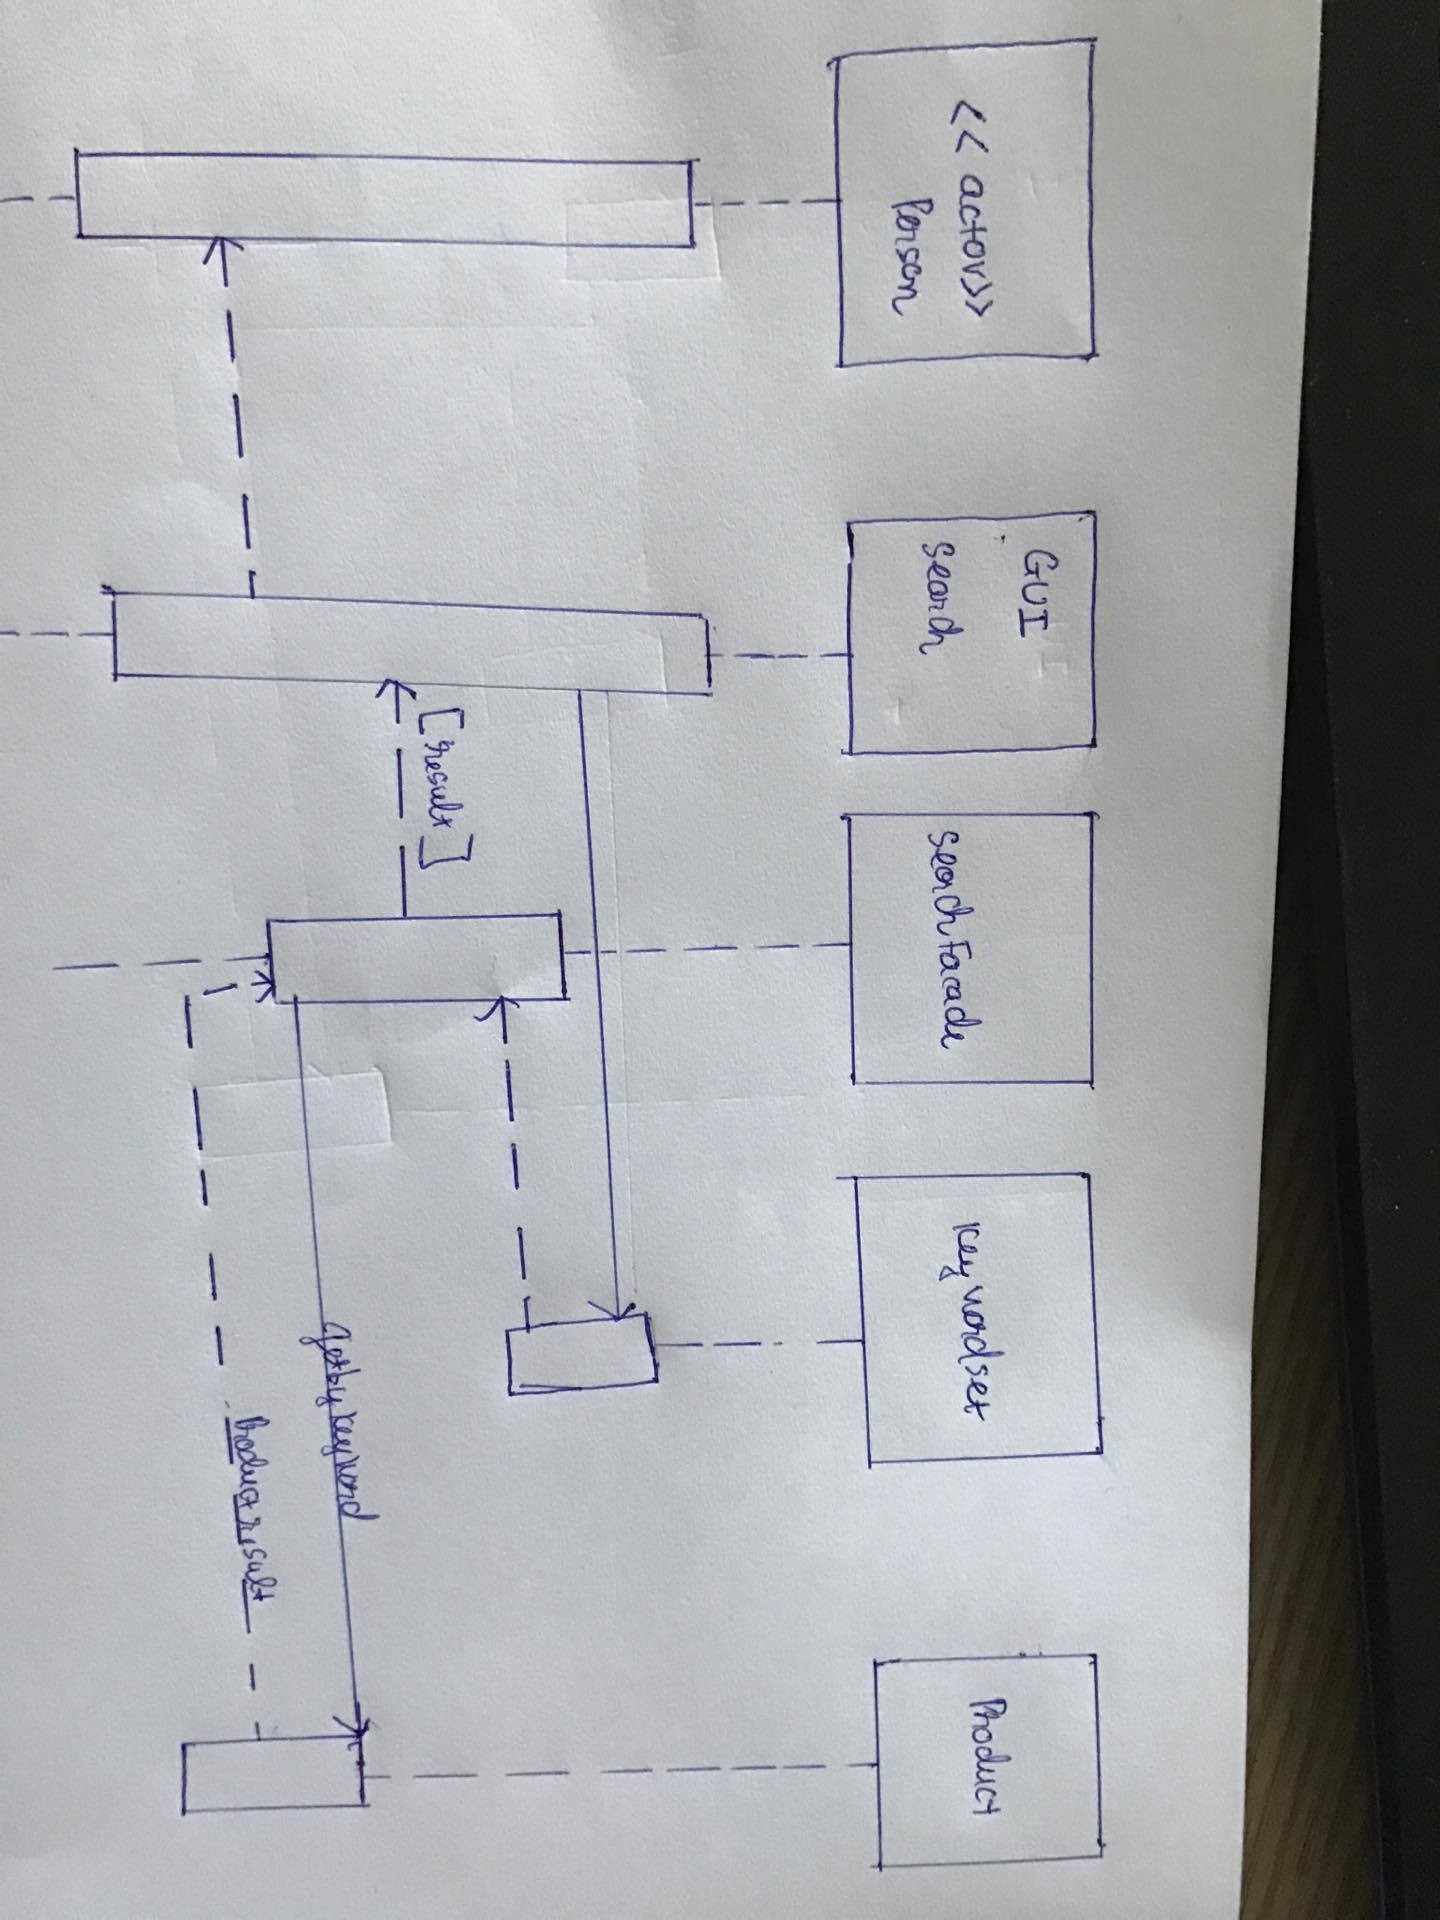 <<actor>>
Person
GUI
search
searchFacade
keywordset
Product
[result]
getbykeyword
Productresult